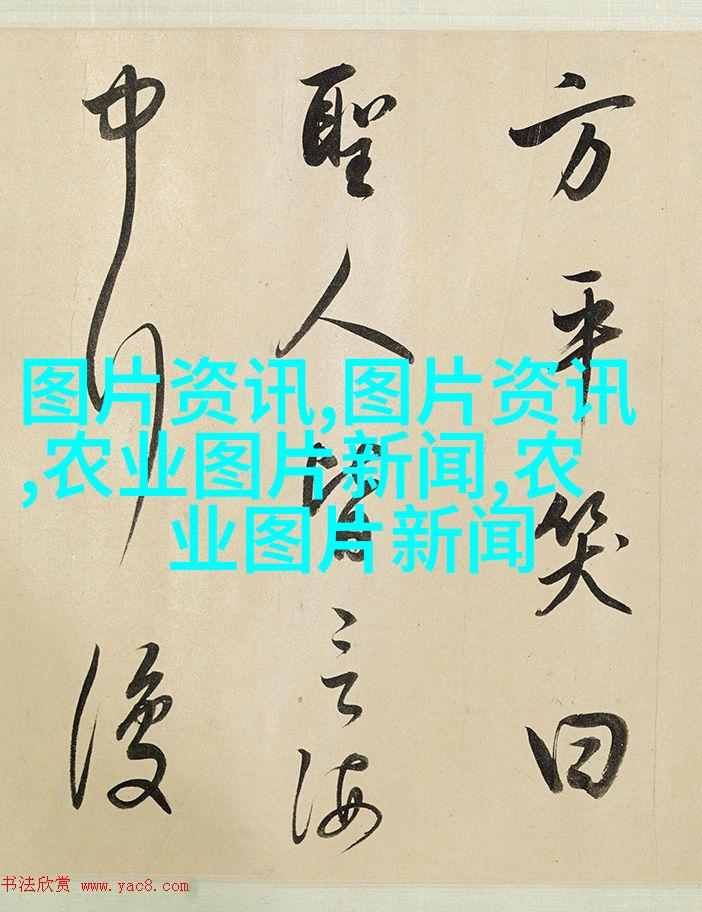 方平笑曰
聖人皆言海
中行復
图片资讯,图片资讯
,农业图片新闻,农
业图片新闻
书法欣赏 www.yac8.com